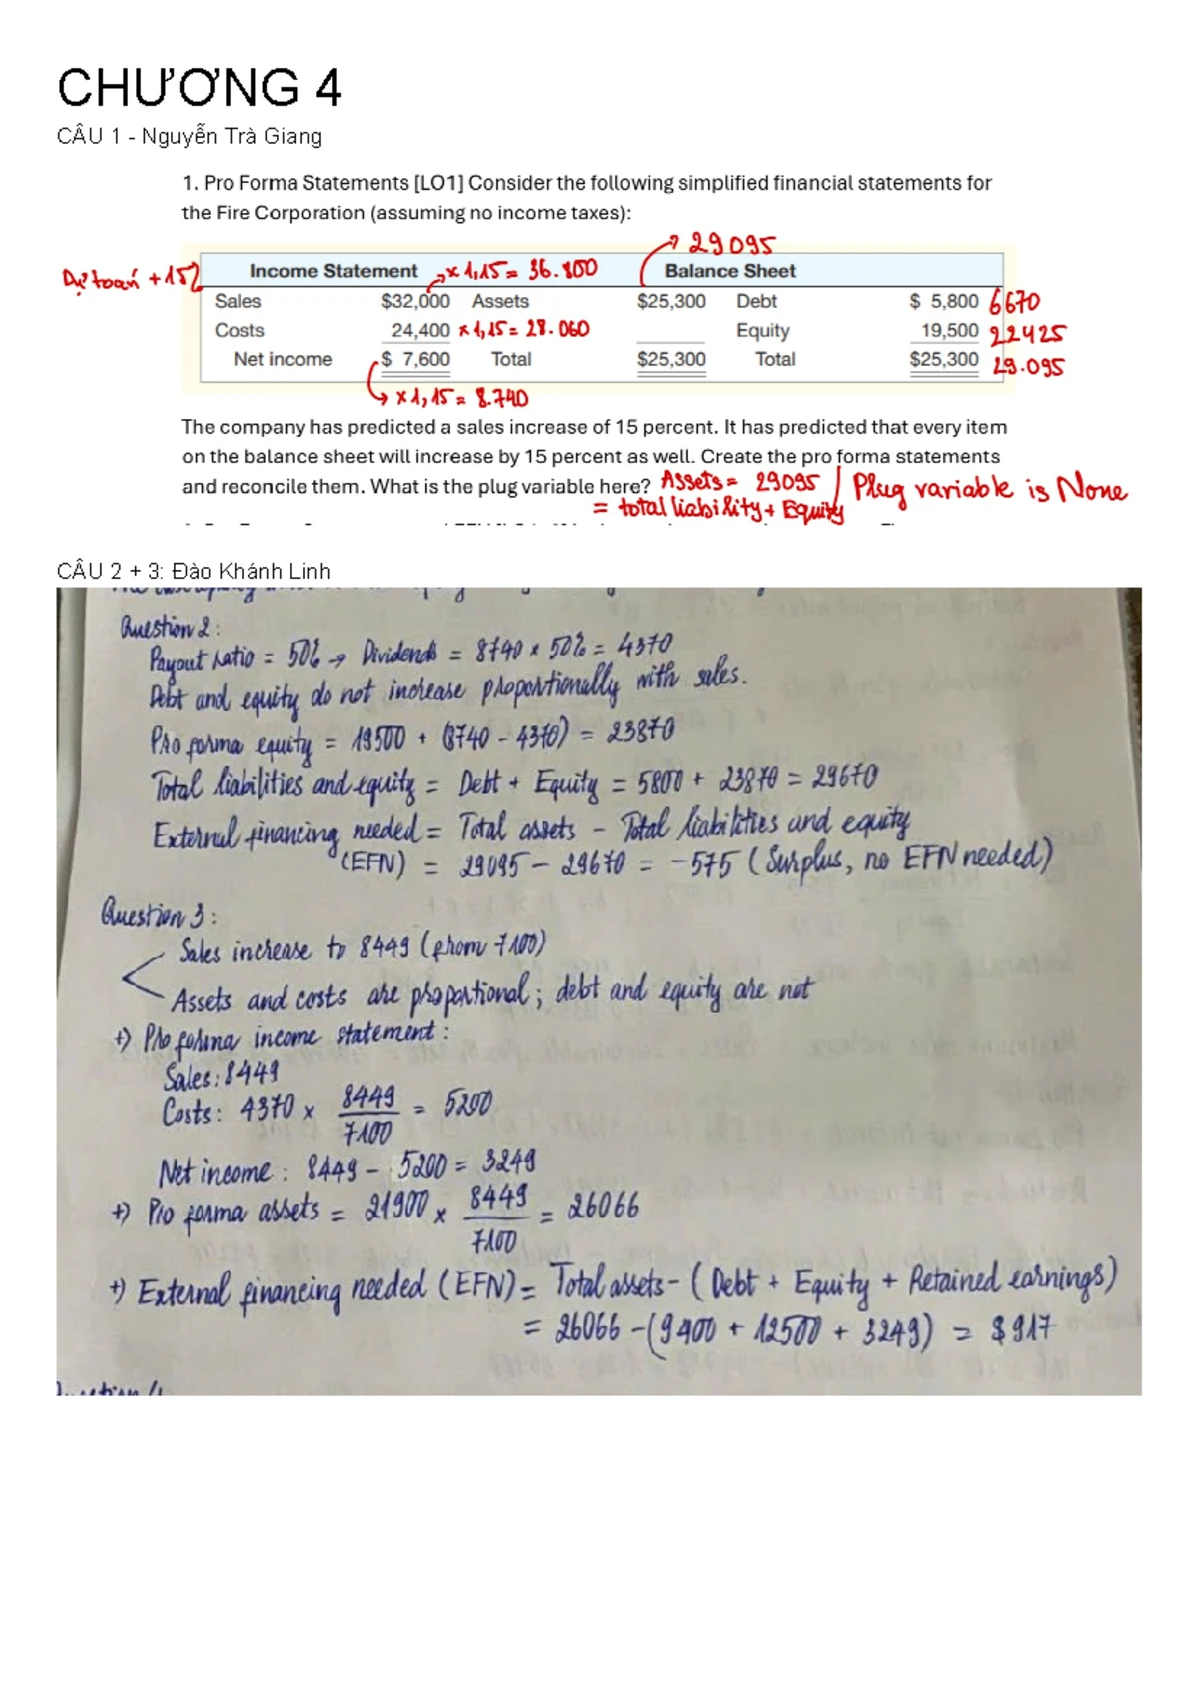 CHƯƠNG 4
CÂU 1 - Nguyễn Trà Giang
1. Pro Forma Statements [LO1] Consider the following simplified financial statements for
the Fire Corporation (assuming no income taxes):
29095
Dự toán +15%
Income Statement x 1,15 = 36.800 Balance Sheet
Sales $32,000 Assets $25,300 Debt $ 5,800 6670
Costs 24,400 x 1,15 = 28.060 Equity 19,500 22425
Net income $ 7,600 Total $25,300 Total $25,300 29.095
x 1,15 = 8.740
The company has predicted a sales increase of 15 percent. It has predicted that every item
on the balance sheet will increase by 15 percent as well. Create the pro forma statements
and reconcile them. What is the plug variable here? Assets = 29095 | Plug variable is None
= total liability + Equity
CÂU 2 + 3: Đào Khánh Linh
Question 2:
Payout ratio = 50% → Dividends = 8740 x 50% = 4370
Debt and equity do not increase proportionally with sales.
Pro forma equity = 19500 + (8740 - 4370) = 23870
Total liabilities and equity = Debt + Equity = 5800 + 23870 = 29670
External financing needed = Total assets - Total liabilities and equity
(EFN) = 29095 - 29670 = -575 (Surplus, no EFN needed)
Question 3:
Sales increase to 8449 (from 7100)
Assets and costs are proportional; debt and equity are not
+) Pro forma income statement:
Sales: 8449
Costs: 4370 x 8449/7100 = 5200
Net income: 8449 - 5200 = 3249
+) Pro forma assets = 21900 x 8449/7100 = 26066
+) External financing needed (EFN) = Total assets - (Debt + Equity + Retained earnings)
= 26066 - (9400 + 12500 + 3249) = $917